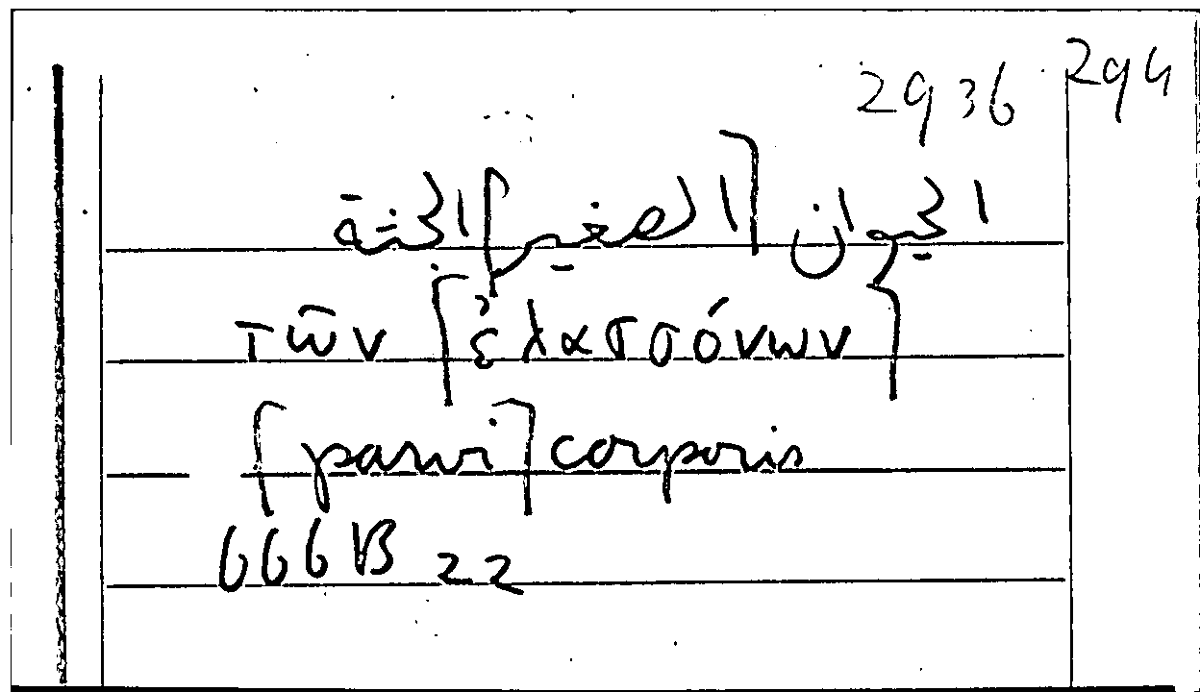 2936 294
الحيوان [الصغير] الجثة
τῶν [ἐλασσόνων]
[parvi] corporis
666 B 22